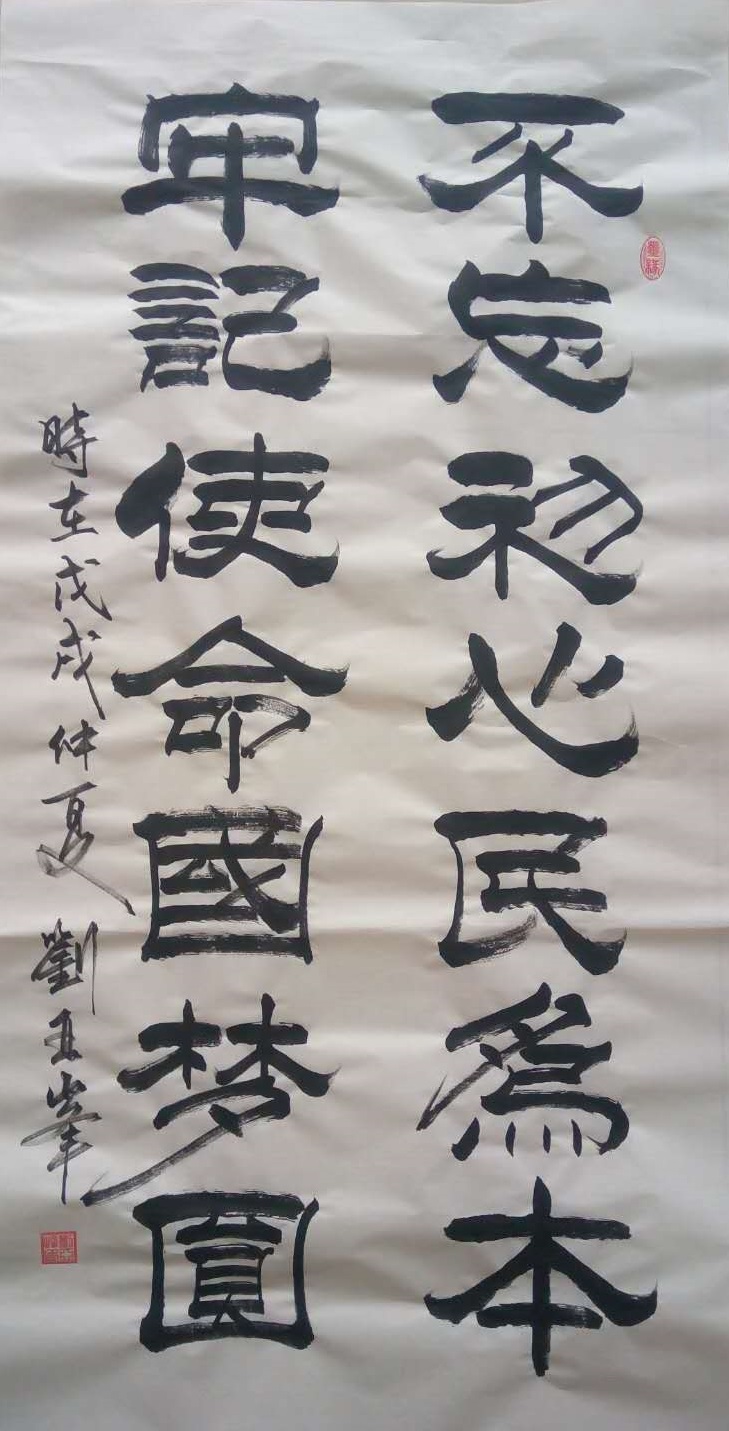 不忘初心民為本
牢記使命國梦圓
時在戊戌仲夏 劉玉峯